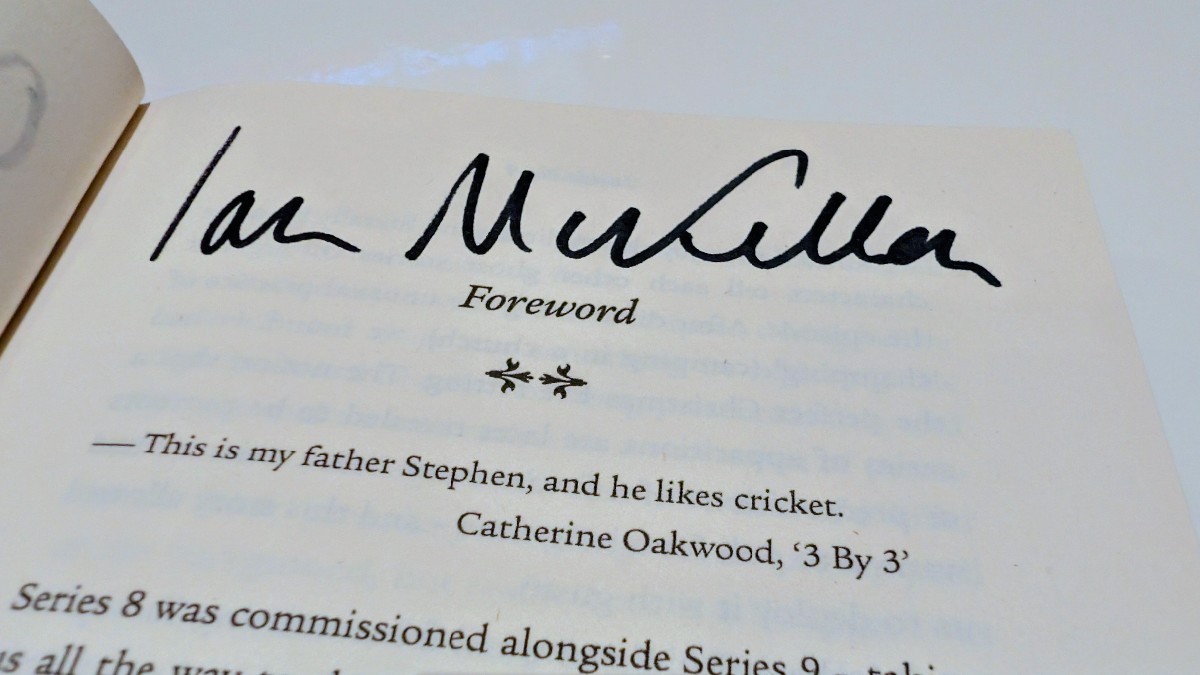 Ian McKellen
Foreword
— This is my father Stephen, and he likes cricket.
Catherine Oakwood, ‘3 By 3’
Series 8 was commissioned alongside Series 9
all the way to